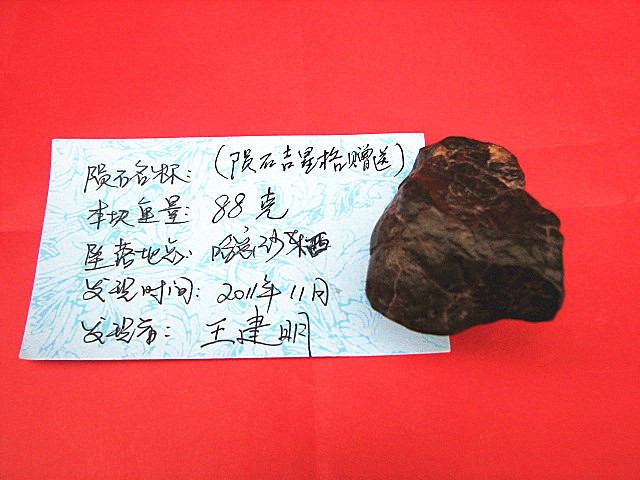 陨石名称：（陨石吉星格赠送）
本块重量：88克
坠落地点：哈密沙 西
发现时间：2011年11月
发现者：王建明